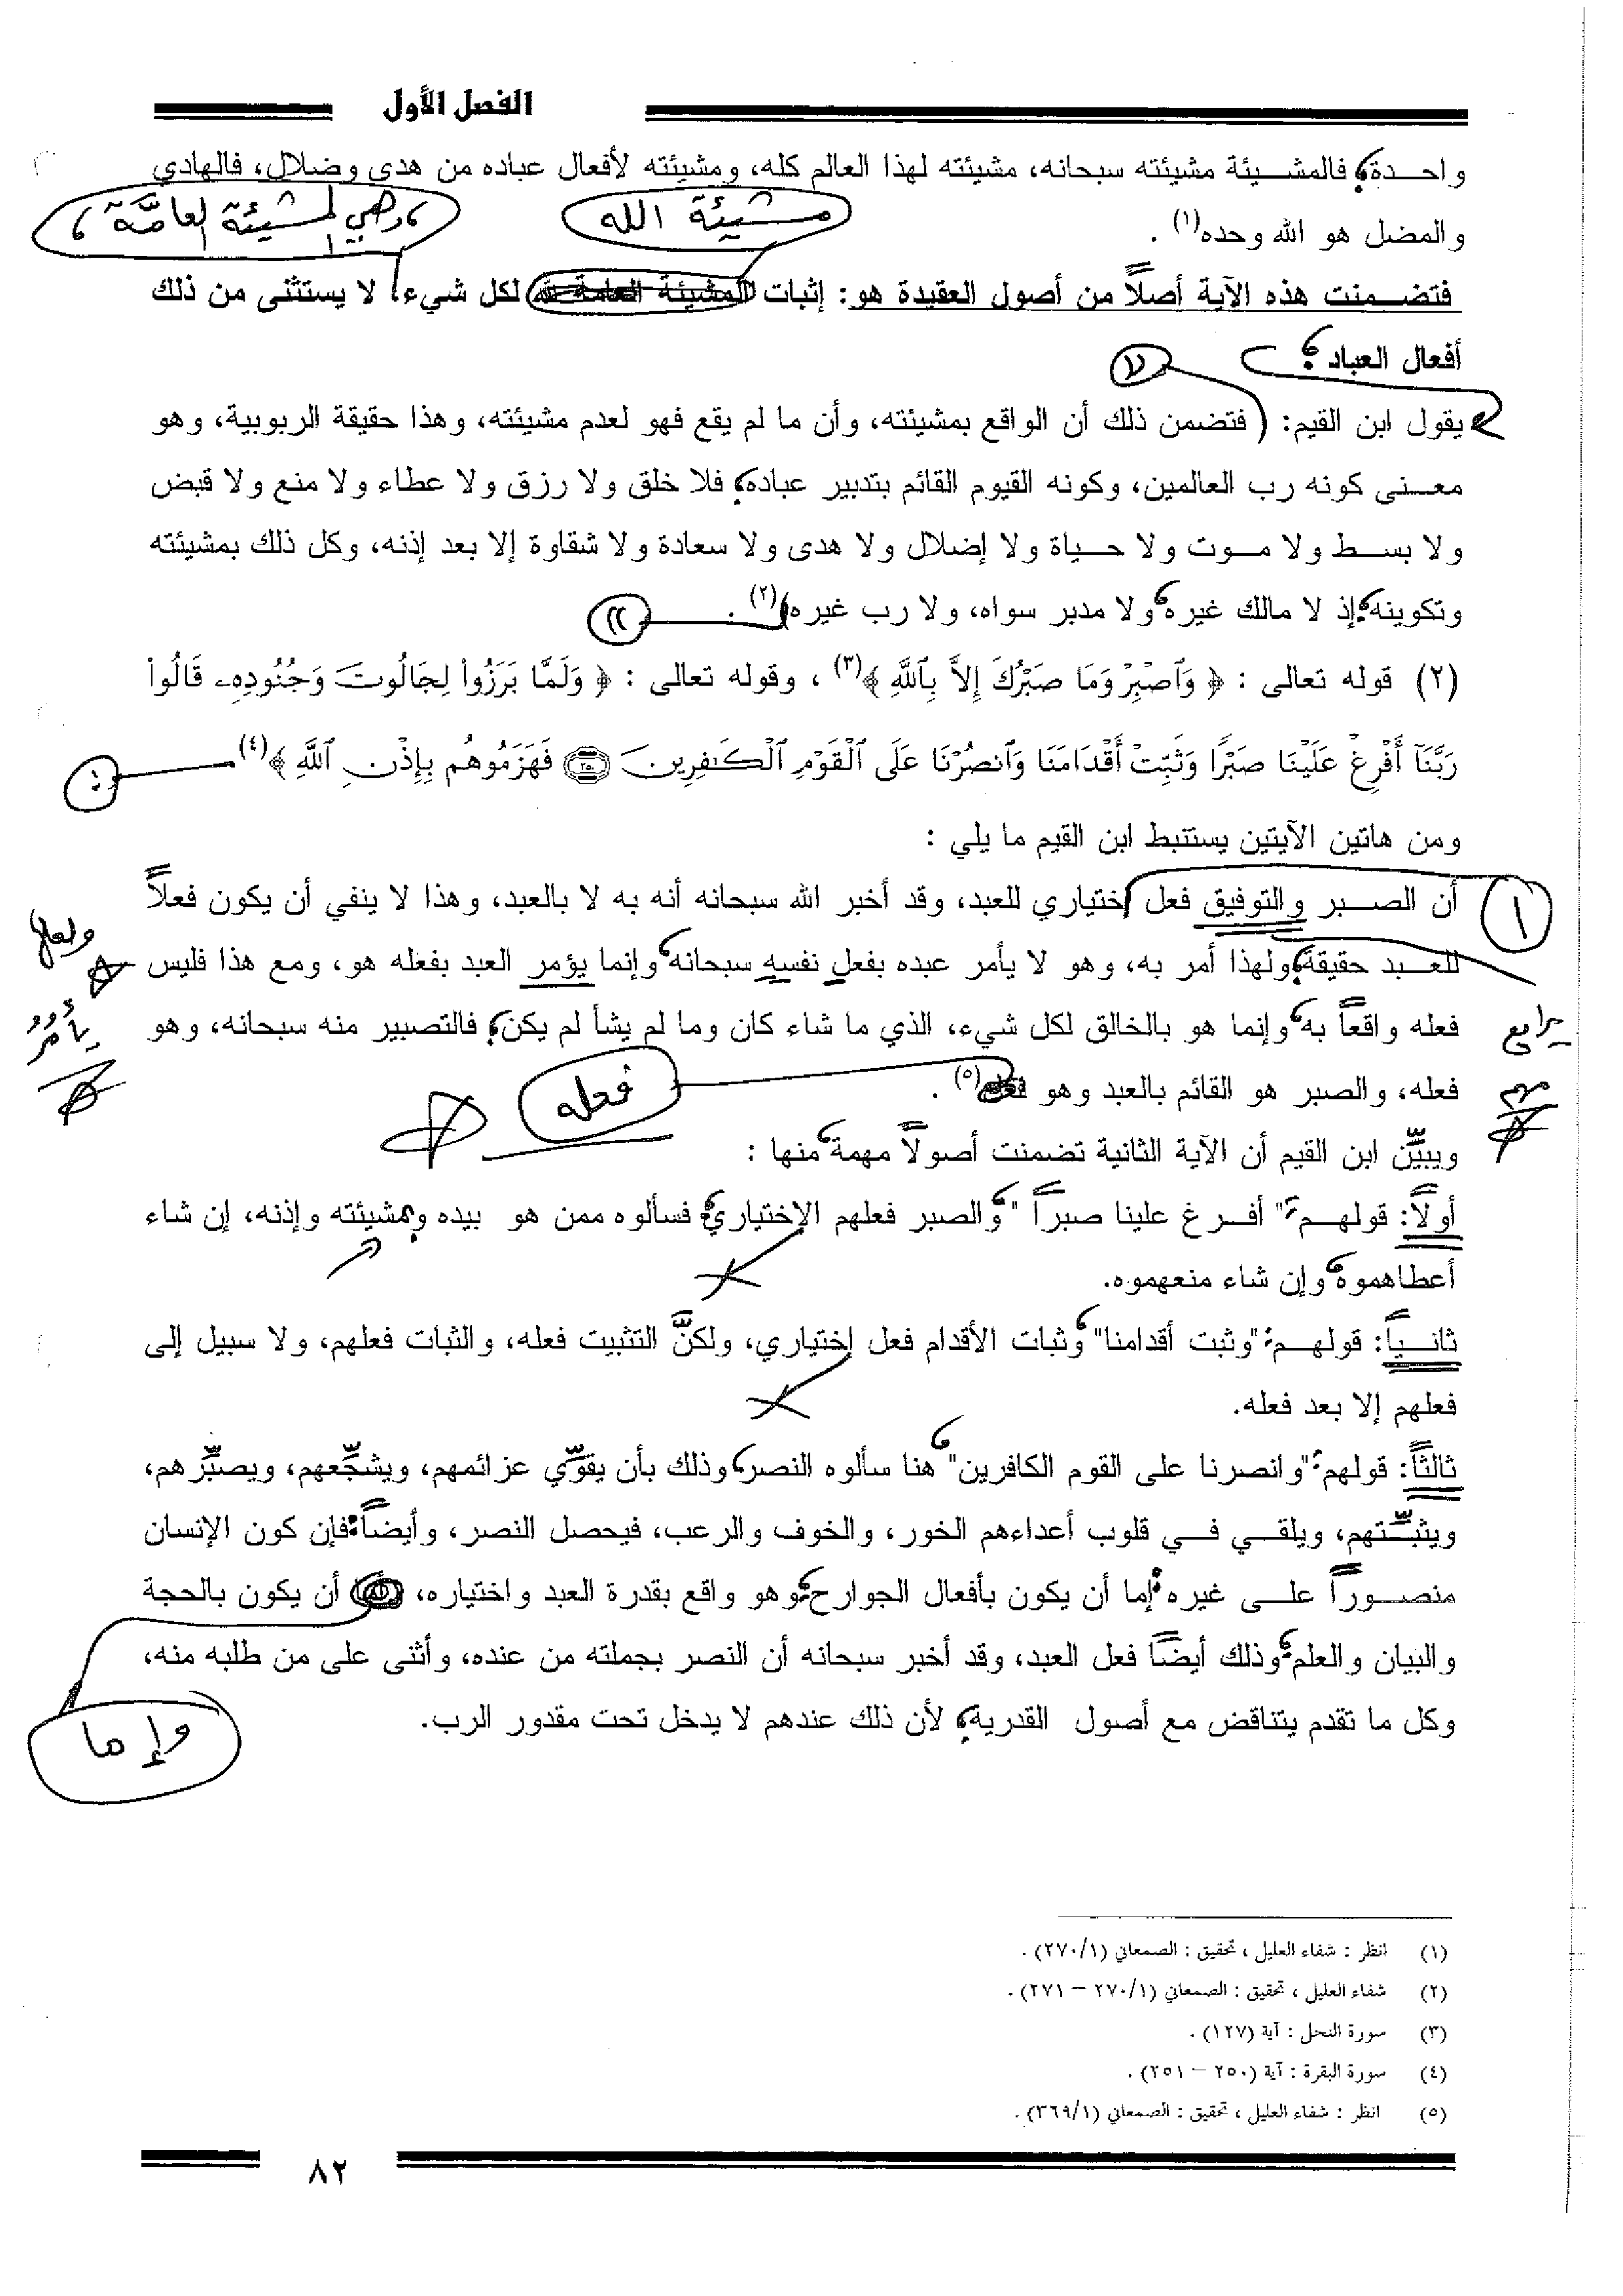 الفصل الأول
واحدة، فالمشيئة مشيئته سبحانه، مشيئته لهذا العالم كله، ومشيئته لأفعال عباده من هدى وضلال، فالهادي
مشيئة الله
وهي المشيئة العامَّة،
والمضل هو الله وحده(١) .
فتضمنت هذه الآية أصلاً من أصول العقيدة هو: إثبات المشيئة العامة لله لكل شيء، لا يستثنى من ذلك
أفعال العباد؛
يقول ابن القيم: (فتضمن ذلك أن الواقع بمشيئته، وأن ما لم يقع فهو لعدم مشيئته، وهذا حقيقة الربوبية، وهو
معنى كونه رب العالمين، وكونه القيوم القائم بتدبير عباده، فلا خلق ولا رزق ولا عطاء ولا منع ولا قبض
ولا بسط ولا موت ولا حياة ولا إضلال ولا هدى ولا سعادة ولا شقاوة إلا بعد إذنه، وكل ذلك بمشيئته
وتكوينه، إذ لا مالك غيره، ولا مدبر سواه، ولا رب غيره)(٢) .
(٢) قوله تعالى : ﴿ وَٱصْبِرْ وَمَا صَبْرُكَ إِلاَّ بِٱللَّهِ ﴾(٣) ، وقوله تعالى : ﴿ وَلَمَّا بَرَزُوا۟ لِجَالُوتَ وَجُنُودِهِۦ قَالُوا۟
رَبَّنَآ أَفْرِغْ عَلَيْنَا صَبْرًا وَثَبِّتْ أَقْدَامَنَا وَٱنصُرْنَا عَلَى ٱلْقَوْمِ ٱلْكَـٰفِرِينَ ۝٢٥٠ فَهَزَمُوهُم بِإِذْنِ ٱللَّهِ ﴾(٤)
ومن هاتين الآيتين يستنبط ابن القيم ما يلي :
١
أن الصبر والتوفيق فعل إختياري للعبد، وقد أخبر الله سبحانه أنه به لا بالعبد، وهذا لا ينفي أن يكون فعلاً
للعبد حقيقة، ولهذا أمر به، وهو لا يأمر عبده بفعل نفسه سبحانه، وإنما يؤمر العبد بفعله هو، ومع هذا فليس
ولعل
يأمُرُ
يراجع
فعله واقعاً به، وإنما هو بالخالق لكل شيء، الذي ما شاء كان وما لم يشأ لم يكن، فالتصبير منه سبحانه، وهو
فعله، والصبر هو القائم بالعبد وهو فعله(٥) .
فعله
ويبيِّن ابن القيم أن الآية الثانية تضمنت أصولاً مهمة، منها :
أولاً: قولهم: "أفرغ علينا صبراً " والصبر فعلهم الإختياري، فسألوه ممن هو بيده وبمشيئته وإذنه، إن شاء
أعطاهموه، وإن شاء منعهموه.
ثانياً: قولهم: "وثبت أقدامنا" وثبات الأقدام فعل إختياري، ولكنَّ التثبيت فعله، والثبات فعلهم، ولا سبيل إلى
فعلهم إلا بعد فعله.
ثالثاً: قولهم: "وانصرنا على القوم الكافرين" هنا سألوه النصر، وذلك بأن يقوِّي عزائمهم، ويشجِّعهم، ويصبِّرهم،
ويثبِّتهم، ويلقي في قلوب أعداءهم الخور، والخوف والرعب، فيحصل النصر، وأيضاً: فإن كون الإنسان
منصوراً على غيره: إما أن يكون بأفعال الجوارح، وهو واقع بقدرة العبد واختياره، أن يكون بالحجة
والبيان والعلم، وذلك أيضاً فعل العبد، وقد أخبر سبحانه أن النصر بجملته من عنده، وأثنى على من طلبه منه،
وكل ما تقدم يتناقض مع أصول القدرية، لأن ذلك عندهم لا يدخل تحت مقدور الرب.
وإما
(١) انظر : شفاء العليل ، تحقيق : الصمعاني (٢٧٠/١) .
(٢) شفاء العليل ، تحقيق : الصمعاني (٢٧٠/١ – ٢٧١) .
(٣) سورة النحل : آية (١٢٧) .
(٤) سورة البقرة : آية (٢٥٠ – ٢٥١) .
(٥) انظر : شفاء العليل ، تحقيق : الصمعاني (٣٦٩/١) .
٨٢